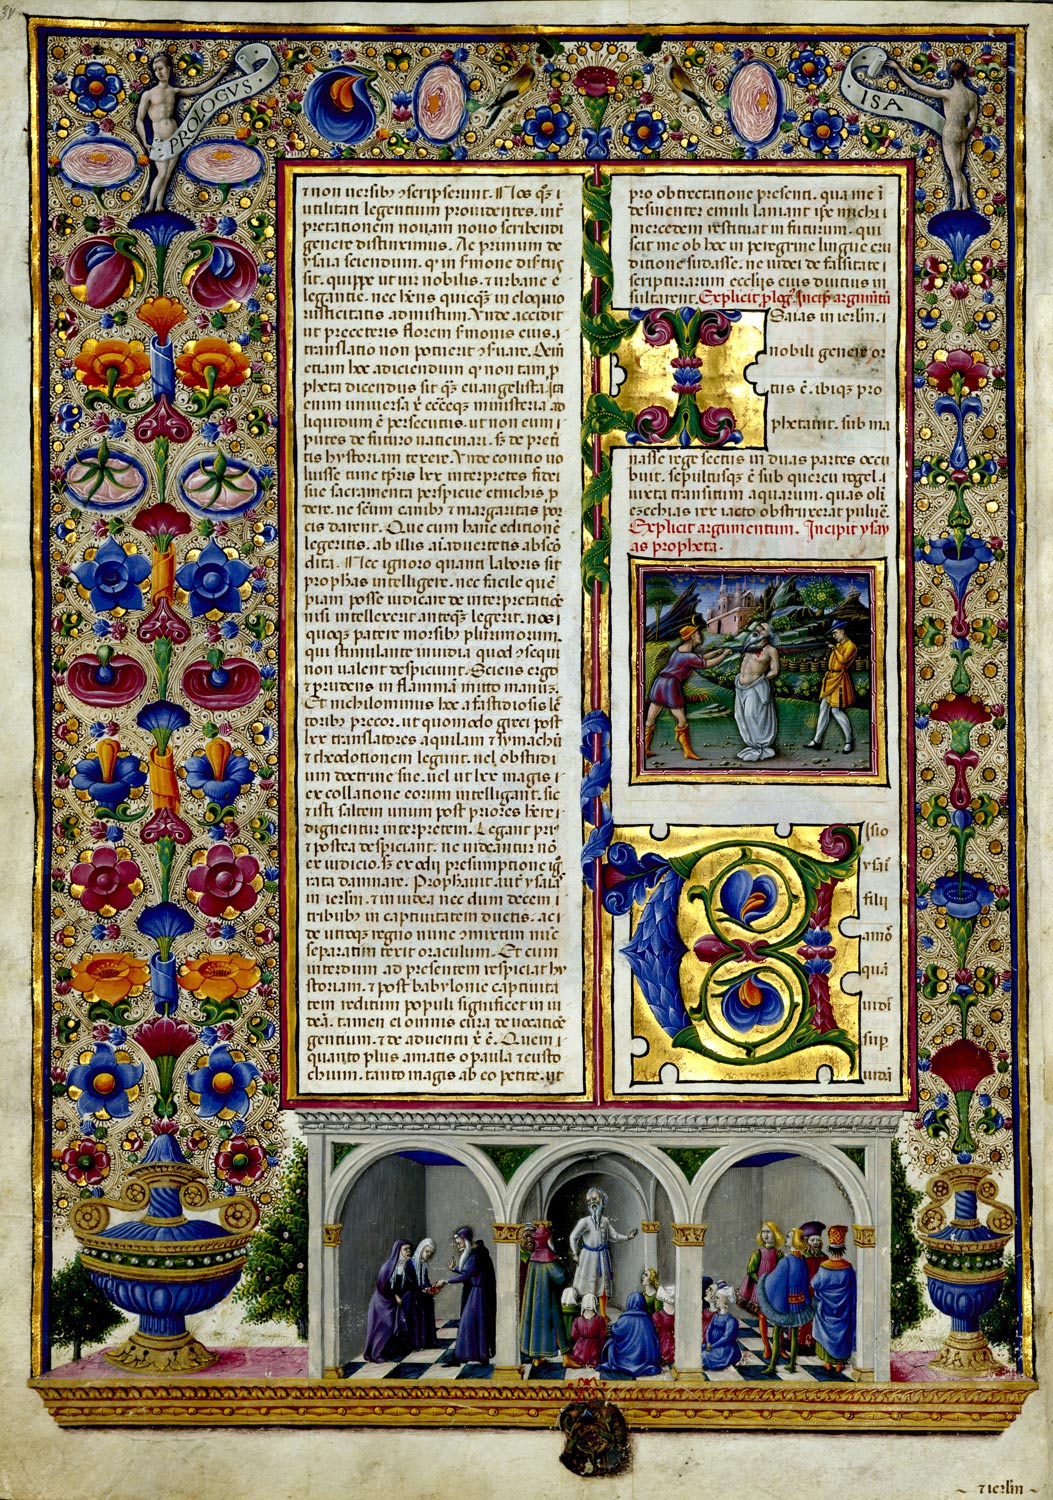 PROLOGVS
ISA
⁊ non uersibꝰ ↄscripserint. Nos qꝫ i
utilitati legentium prouidentes. int̄
pretationem nouam nouo scribendi
genere distinximus. Ac primum de
ysaia sciendum. qͥ in sermone disertus
sit. quippe ut uir nobilis. ⁊ urbane e
legantie. nec hēns quicqꝫ in eloquio
rusticitatis admistum. Vnde accidit
ut preceteris florem sermonis eius. i
translatio non potuerit ↄseruare. Dein
etiam hoc adiciendum qͥ non tam ꝓ
pheta dicendus sit qꝫ euangelista. Ita
enim uniuersa xp̄i ecclesieqꝫ misteria ad
liquidum ē persecutus. ut non eum i
putes de futuro uaticinari. sꝫ de preti
tis hystoriam texere. Vnde conitio uo
luisse tunc tp̄ris lxx interpretes fidei
sue sacramenta perspicue etnichis. ꝓ
dere. ne scm̄ canibꝰ ⁊ margaritas por
cis darent. Que cum hanc editionē
legeritis. ab illis aīaduertetis abscō
dita. Nec ignoro quanti laboris sit
prophas intelligere. nec facile quē
piam posse iudicare de interpretatiōe
nisi intellexerit anteqꝫ legerit. nos i
quoqꝫ patere morsibꝰ plurimorum.
qui stimulante inuidia quod ↄsequi
non ualent despiciunt. Sciens ergo
⁊ prudens in flammā mitto manuꝫ.
Et nichilominus hoc a fastidiosis lec
toribꝰ precor. ut quomodo greci post
lxx translatores aquilam ⁊ symachū
⁊ theodotionem legunt. uel ob studi
um doctrine sue. uel ut lxx magis i
ex collatione eorum intelligant. sic
⁊ isti saltem unum post priores habere i
dignentur interpretem. Legant priꝰ
⁊ postea despiciant. ne uideantur nō
ex iudicio. sꝫ ex odii presumptione ig
rata damnare. Prophauit aut ysaia
in ierlm̄. ⁊ in iudea nec dum decem i
tribubꝰ in captiuitatem ductis. ac i
de utroqꝫ regno nunc ↄmixtim nūc
separatim texit oraculum. Et cum
interdum ad presentem respiciat hy
storiam. ⁊ post babylonie captiuita
tem reditum populi significet in iu
deā. tamen ei omnis cura de uocatiōe
gentium. ⁊ de aduentū xp̄i ē. Quem i
quanto plus amatis o paula ⁊ eusto
chium. tanto magis ab eo petite. ut
pro obtrectatione presenti. qua me i
desinenter emuli laniant ip̄e michi i
mercedem restituat in futurum. qui
scit me ob hoc in peregrine lingue eru
ditione sudasse. ne iudei de falsitate i
scripturarum eccl̄iis eius diutius in
sultarent. Explicit plogꝰ. Incip̄ argumtū
I Saias in ierlm̄. i
nobili genere or
tus ē. ibiqꝫ pro
phetauit. sub ma
nasse rege sectus in duas partes occu
buit. sepultusqꝫ ē sub quercu rogel. i
iuxta transitum aquarum. quas oli
ezechias rex iacto obstruxerat puluē.
Explicit argumentum. Incipit ysay
as propheta.
V Isio
ysaī
filii
amō
quā
uidī
sup
iudā
~ ⁊ ierlm̄ ~